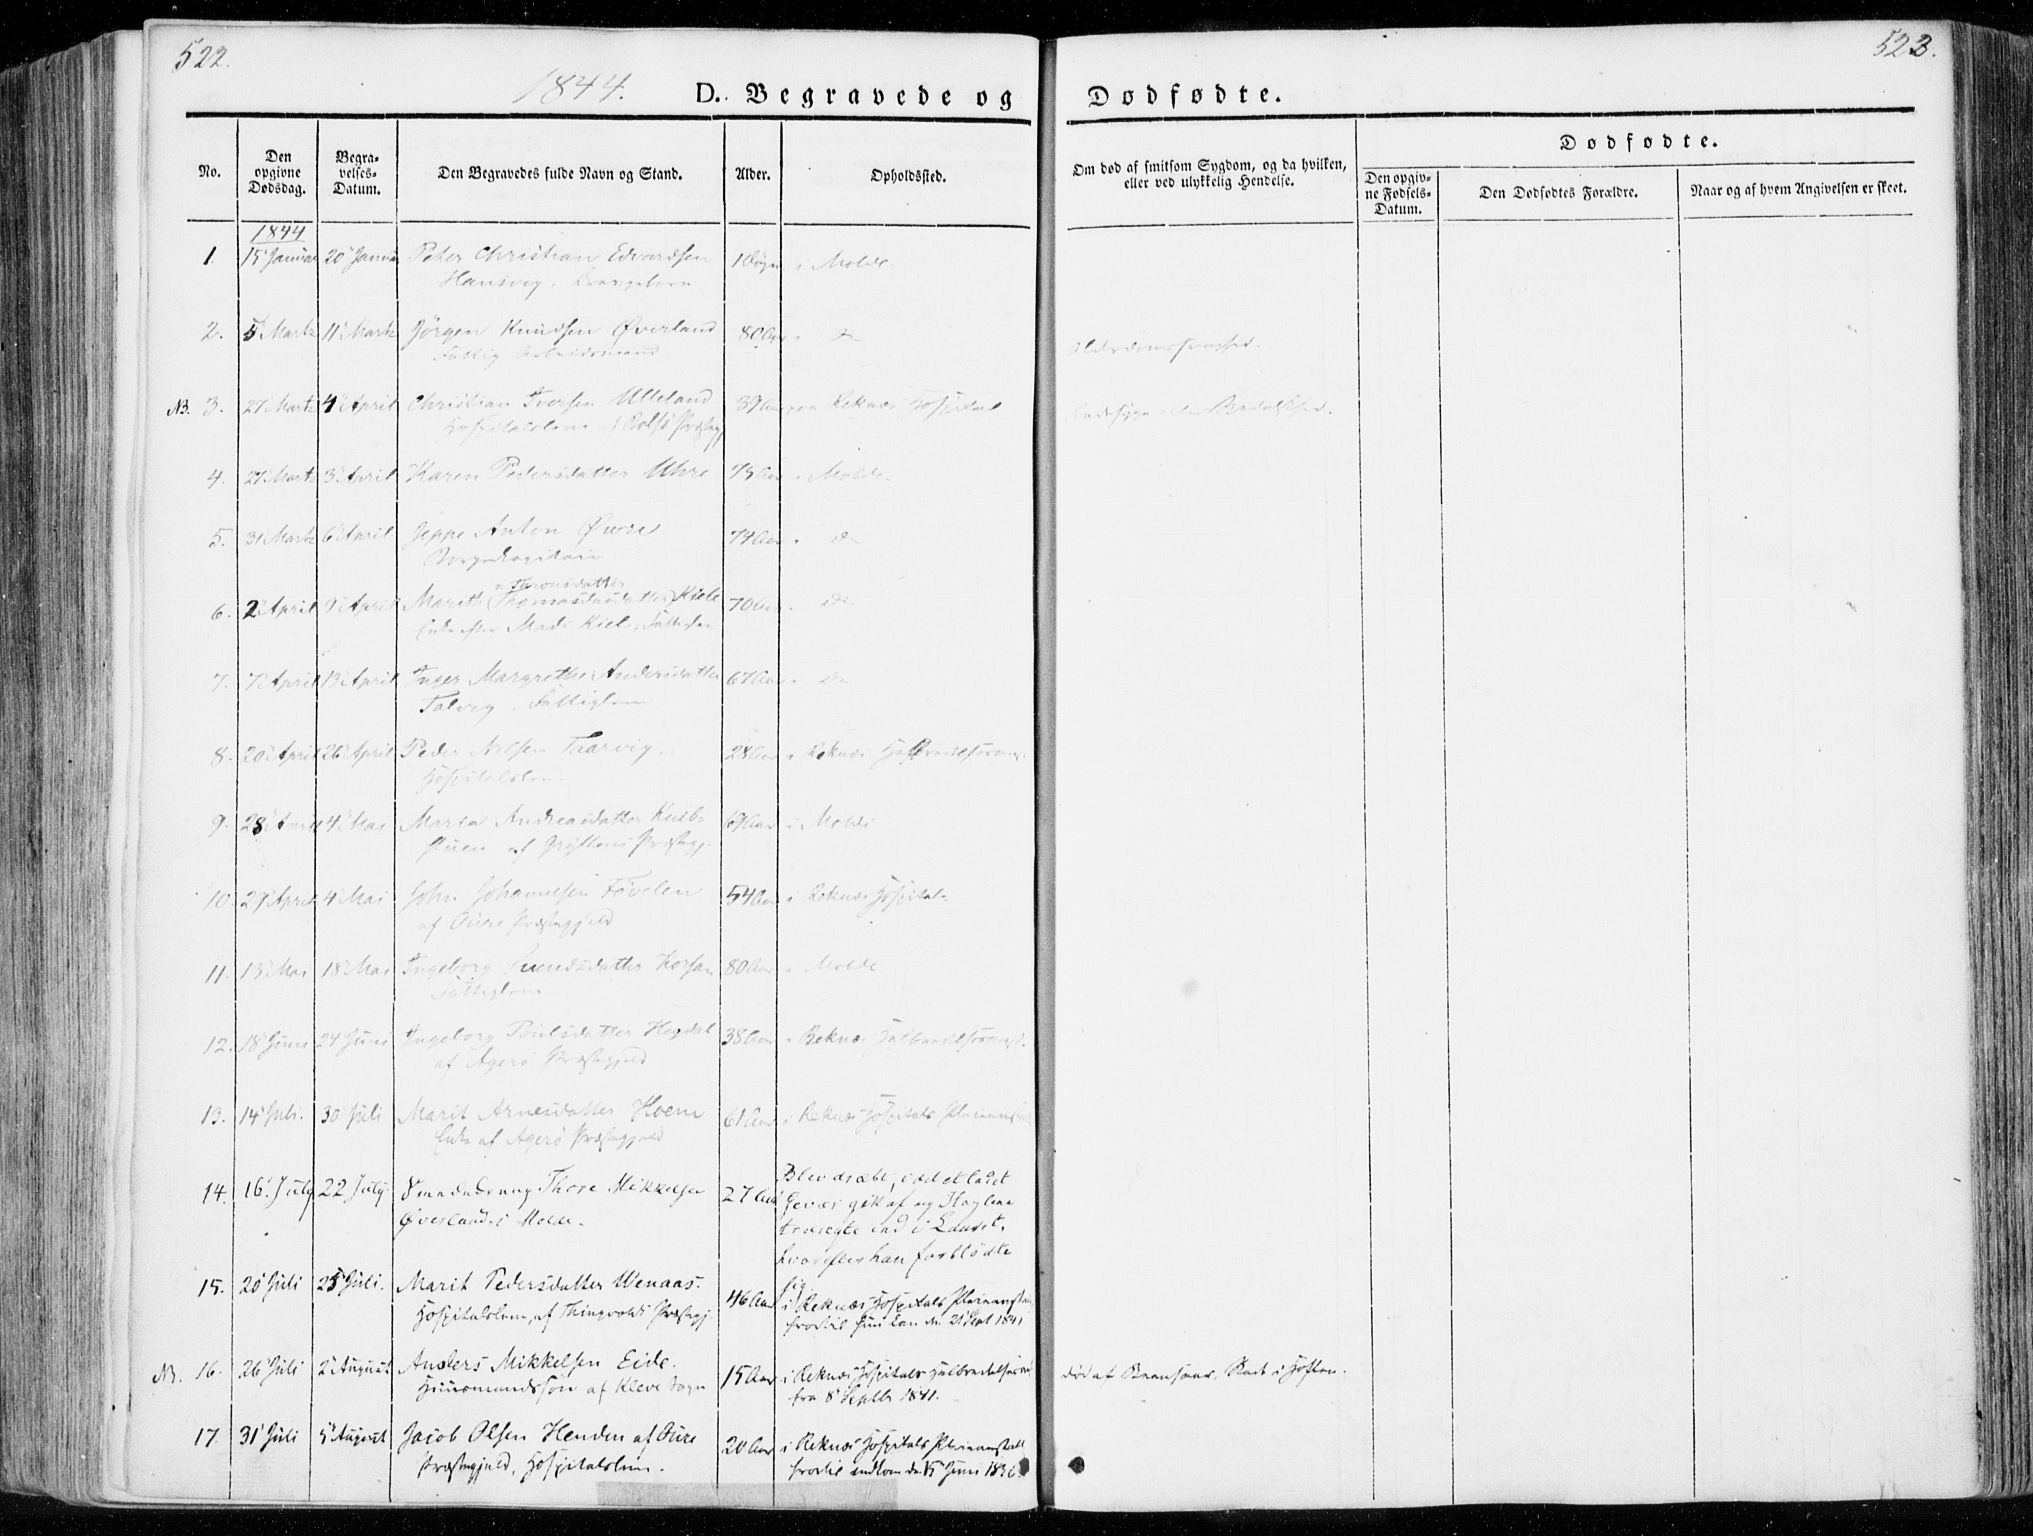 522.
523.
1844. D. Begravede og Dødfødte.
No.
Den opgivne Dødsdag.
Begravelses-Datum.
Den Begravedes fulde Navn og Stand.
Alder.
Opholdsted.
Om død af smitsom Sygdom, og da hvilken, eller ved ulykkelig Hendelse.
Dødfødte.
Den opgivne Fødsels-Datum.
Den Dødfødtes Forældre.
Naar og af hvem Angivelsen er skeet.
1844
1. 15 Januar 20 Januar Peter Christian Edvardsen 1 Døgn i Molde.
Hansvig,
2. 5 Martz 11 Martz Jörgen Knudsen Överland 80 Aar do
Fattig Arbeidsmand
Alderdomssvaghed.
NB. 3. 27 Martz 4 April Christian Iversen Ulleland 39 Aar paa Reknæs Hospital
Hospitalslem af Bolsö Præstegj.
4. 27 Martz 3 April Karen Pedersdatter Uhre 75 Aar i Molde.
5. 31 Martz 6 April Jeppe Anton Övre 74 Aar do
Borgerkapitain
6. 2 April 9 April Marith Thomasdatter Kiele 70 Aar do
Enke efter Mads Kiel, Fattiglem
7. 7 April 13 April Inger Margrethe Andersdatter 67 Aar do
Talvig, Fattiglem
8. 20 April 26 April Peder Nilsen Taarvig 28 Aar i Reknæs
Hospitalslem
9. 28 April 4 Mai Marta Andreasdatter 69 Aar i Molde
af Præstegj.
10. 29 April 4 Mai John Johannesen Tövelen 54 Aar i Reknæs Hospital
af Öure Præstegjeld
11. 13 Mai 18 Mai Ingeborg Svendsdatter Korsan 80 Aar i Molde
Fattiglem
12. 18 Juni 24 Juni Ingeborg Poulsdatter Hegdal 38 Aar i Reknæs Helbredelsesanst.
af Agerö Præstegjeld
13. 14 Juli. 30 Juli Marit Arnesdatter Hoem 61 Aar i Reknæs Hospitals Pleieanstalt
Enke af Agerö Præstegjeld
14. 16 July 22 July Smededreng Thore Mikkelsen 27 Aar Blev dræbt, i det et ladet
Överland i Molde. Gevær gik af og Haglene
trængte ind i Laaret,
hvorefter han forblödte
sig
15. 20 Juli 25 Juli. Marit Pedersdatter Wenaas. 46 Aar i Reknæs Hospitals Pleieanstalt
Hospitalslem, af Thingvolds Præstegj. hvortil hun kom den 21 Sept 1841
NB. 16. 26 Juli 2 August Anders Mikkelsen Eide. 15 Aar i Reknæs Hospitals Helbredelsesanst
Huusmandssön af Kleve Sogn fra 8 Septbr 1841.
död af Beensaar, i Hoften.
17. 31 Juli 5 August Jacob Olsen Henden af Öure 20 Aar i Reknæs Hospitals Pleieanstalt
Præstegjeld, Hospitalslem. hvortil indkom den 15 Juni 1836